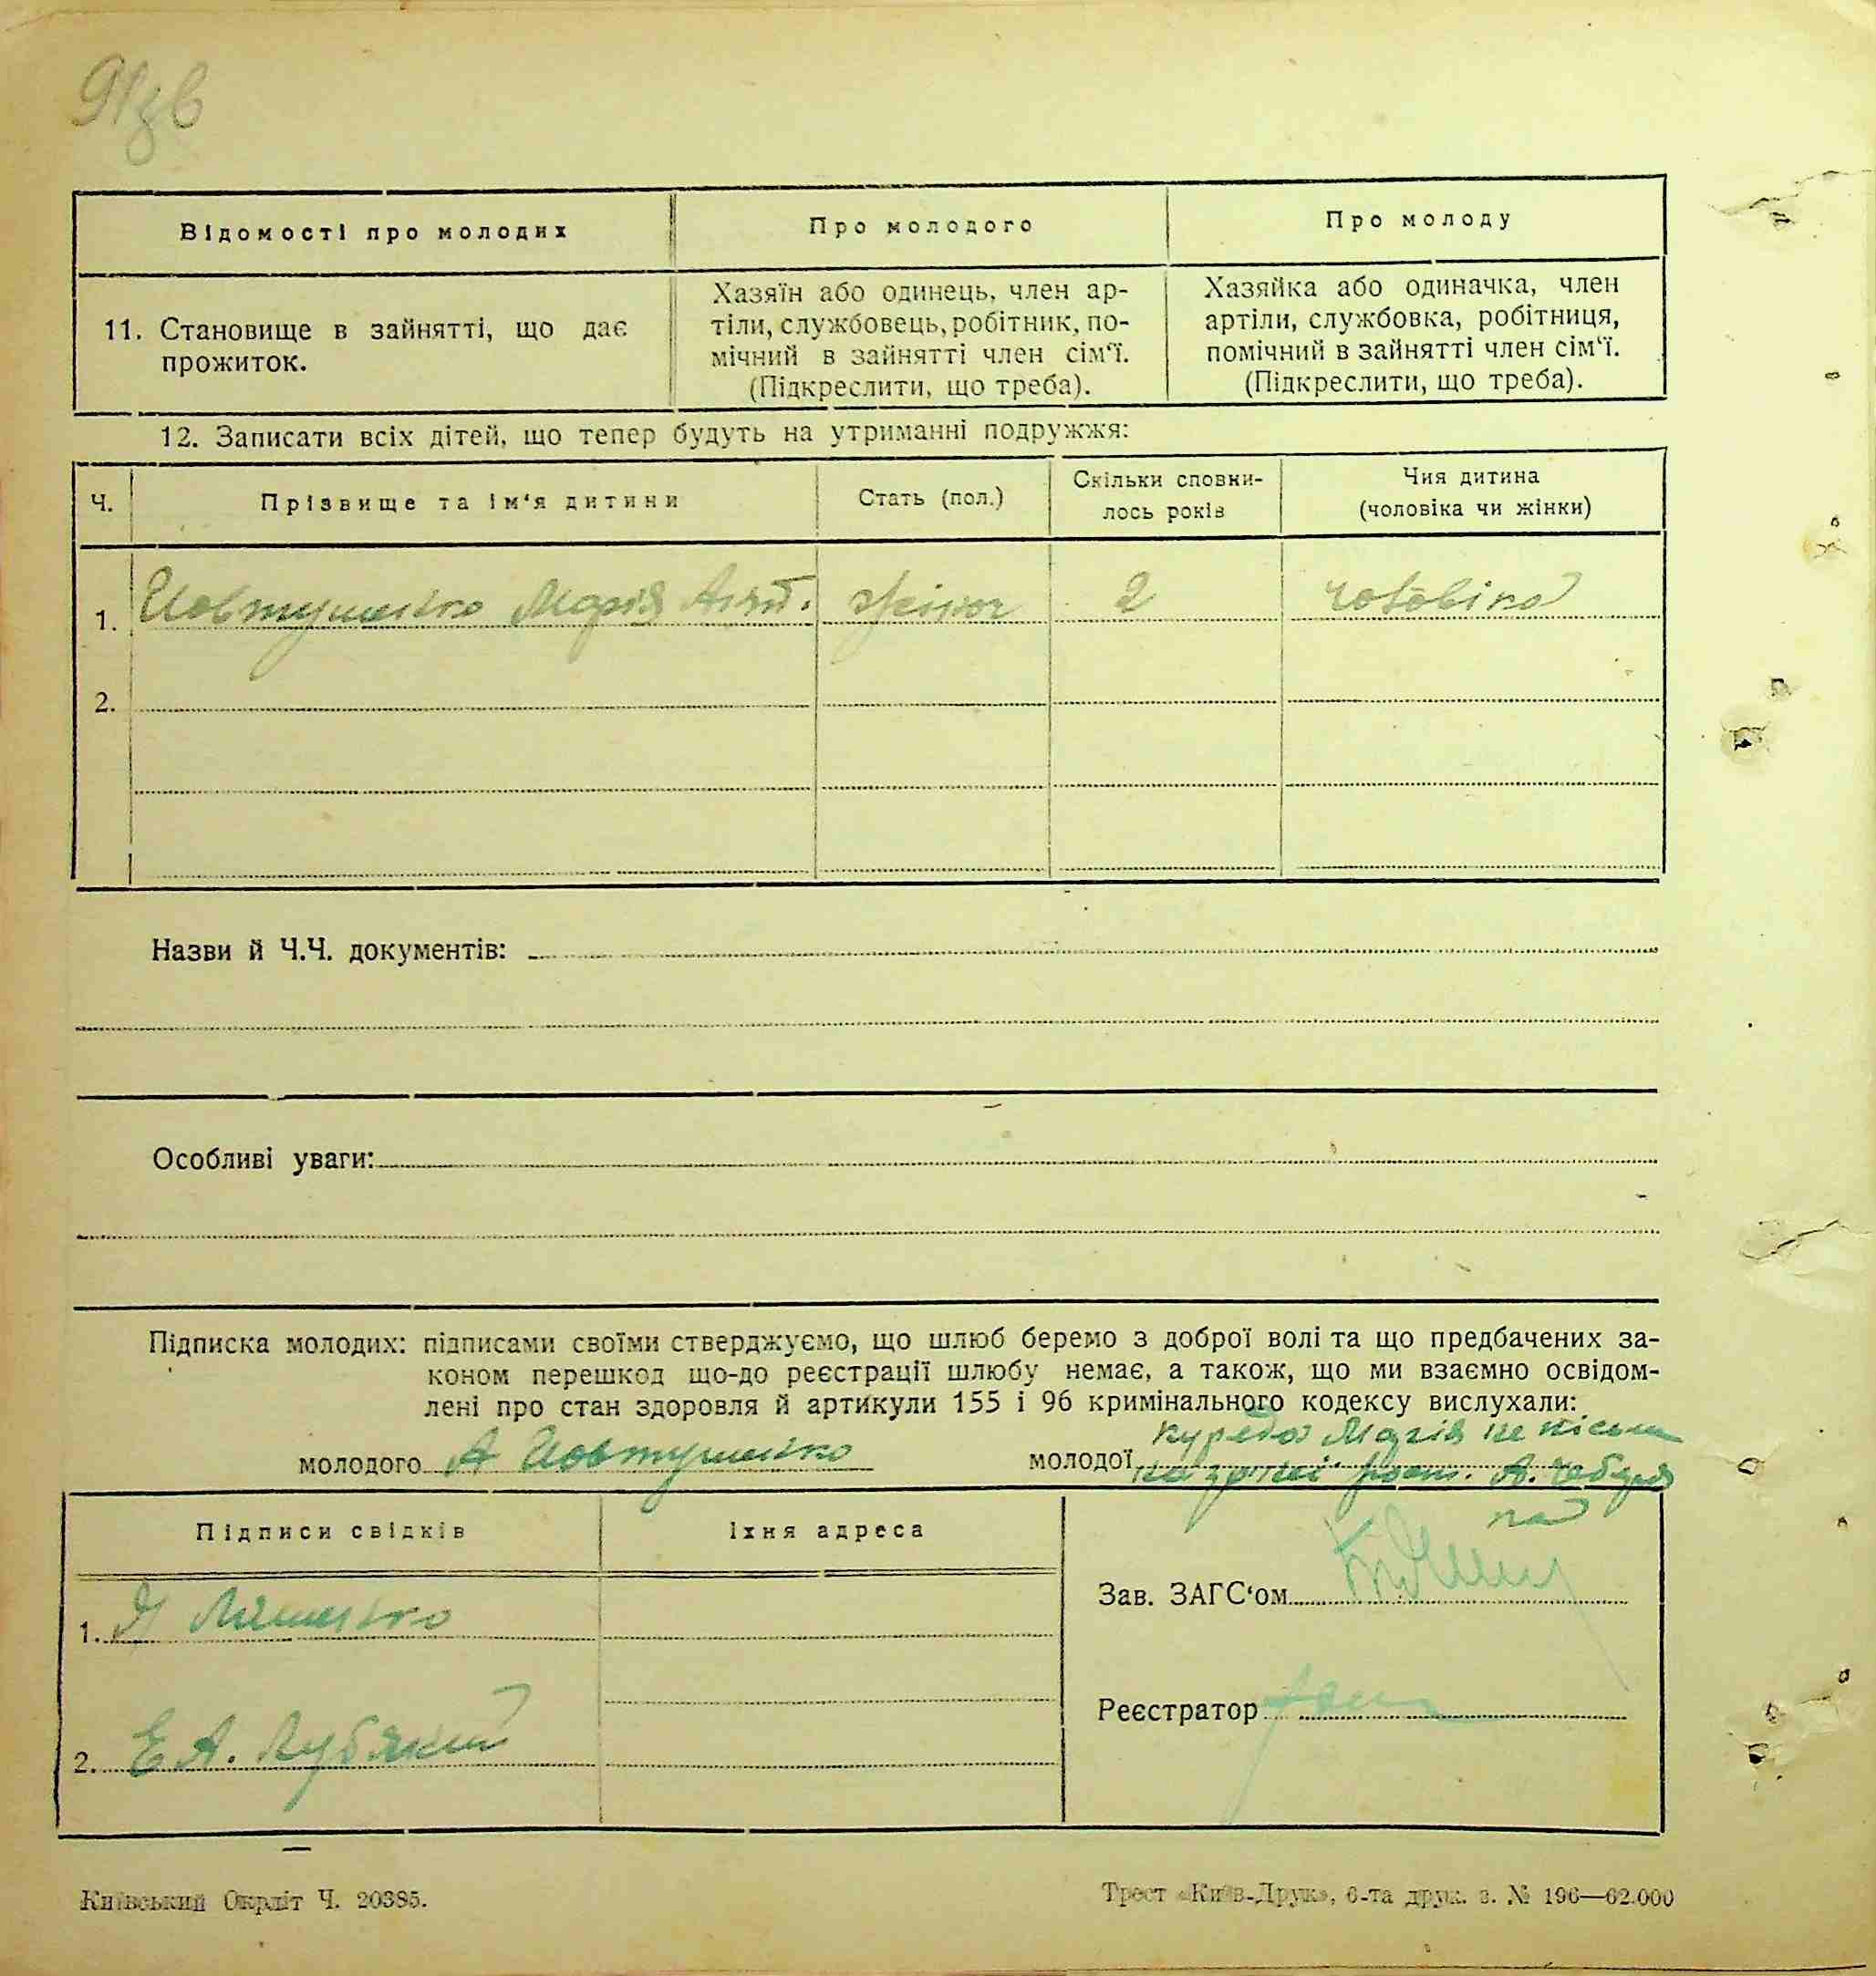 91зв
Відомості про молодих
Про молодого
Про молоду
11. Становище в зайнятті, що дає
прожиток.
Хазяїн або одинець, член ар-
тіли, службовець, робітник, по-
мічний в зайнятті член сім'ї.
(Підкреслити, що треба).
Хазяйка або одиначка, член
артіли, службовка, робітниця,
помічний в зайнятті член сім'ї.
(Підкреслити, що треба).
12. Записати всіх дітей, що тепер будуть на утриманні подружжя:
Ч.
Прізвище та ім'я дитини
Стать (пол.)
Скільки сповни-
лось років
Чия дитина
(чоловіка чи жінки)
1. Иовтушенко Марія Ант. жіноч 2 чоловіка
2.
Назви й Ч.Ч. документів:
Особливі уваги:
Підписка молодих: підписами своїми стверджуємо, що шлюб беремо з доброї волі та що предбачених за-
коном перешкод що-до реєстрації шлюбу немає, а також, що ми взаємно освідом-
лені про стан здоровля й артикули 155 і 96 кримінального кодексу вислухали:
молодого А Иовтушенко
молодої Марія не
А.
Підписи свідків
Їхня адреса
1. Ляшенко
2. Е А.
Зав. ЗАГС'ом
Реєстратор
Київський Окрліт Ч. 20385.
Трест «Київ-Друк», 6-та друк. з. № 196—62.000